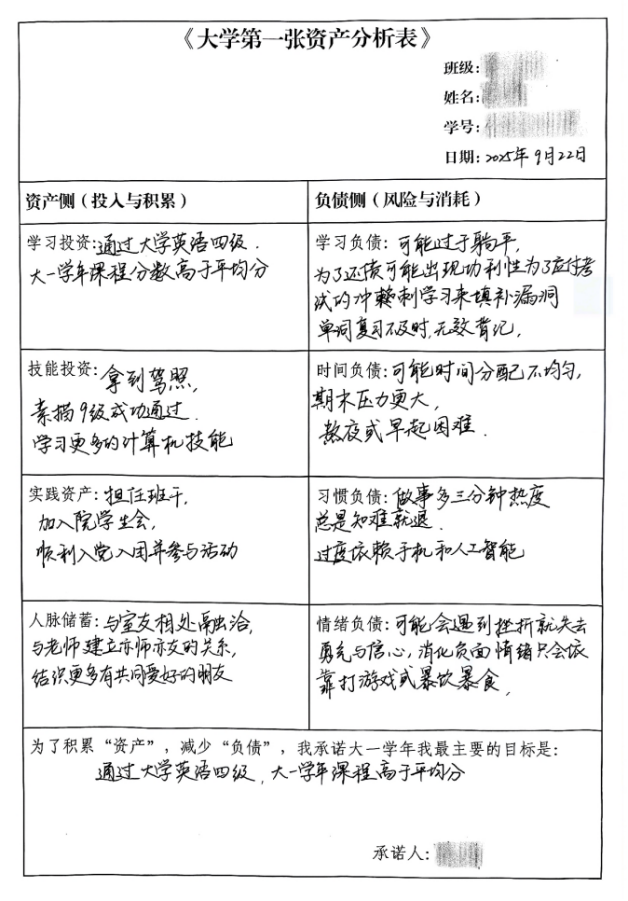 《大学第一张资产分析表》
班级:
姓名:
学号:
日期: 2025年9月22日
资产侧（投入与积累）
负债侧（风险与消耗）
学习投资: 通过大学英语四级.
大一学年课程分数高于平均分
学习负债: 可能过于躺平,
为了还债可能出现功利性为了应付考
试的冲刺学习来填补漏洞
单词复习不及时,无效背记,
技能投资: 拿到驾照,
素描9级成功通过.
学习更多的计算机技能
时间负债: 可能时间分配不均匀,
期末压力更大,
熬夜或早起困难.
实践资产: 担任班干,
加入院学生会,
顺利入党入团并参与活动
习惯负债: 做事多三分钟热度
总是知难就退.
过度依赖手机和人工智能
人脉储蓄: 与室友相处融洽,
与老师建立亦师亦友的关系,
结识更多有共同爱好的朋友
情绪负债: 可能会遇到挫折就失去
勇气与信心,消化负面情绪只会依
靠打游戏或暴饮暴食,
为了积累“资产”，减少“负债”，我承诺大一学年我最主要的目标是：
通过大学英语四级,大一学年课程高于平均分
承诺人: